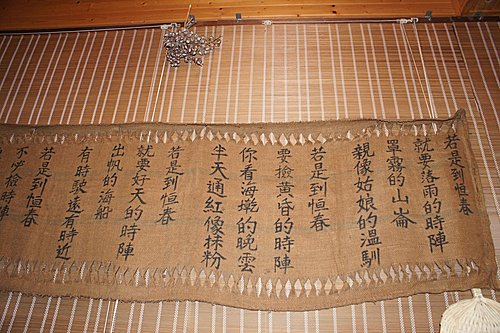 若是到恒春
就要落雨的時陣
罩霧的山崙
親像姑娘的溫馴
若是到恒春
要撿黃昏的時陣
你看海墘的晚雲
半天通紅像抹粉
若是到恒春
就要好天的時陣
出帆的海船
有時駛遠有時近
若是到恒春
不必撿時陣